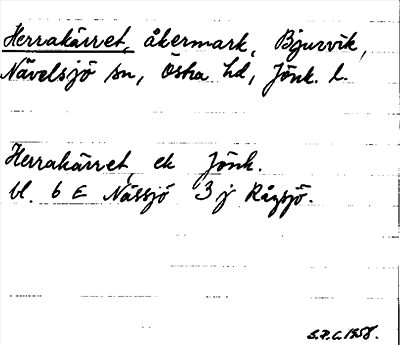 Herrakärret, åkermark, Bjurvik,
Nävelsjö sn, Östra hd, Jönk. l.
Herrakärret ek Jönk.
bl. 6 E Nässjö 3 j Rågsjö.
S.F.C. 1958.